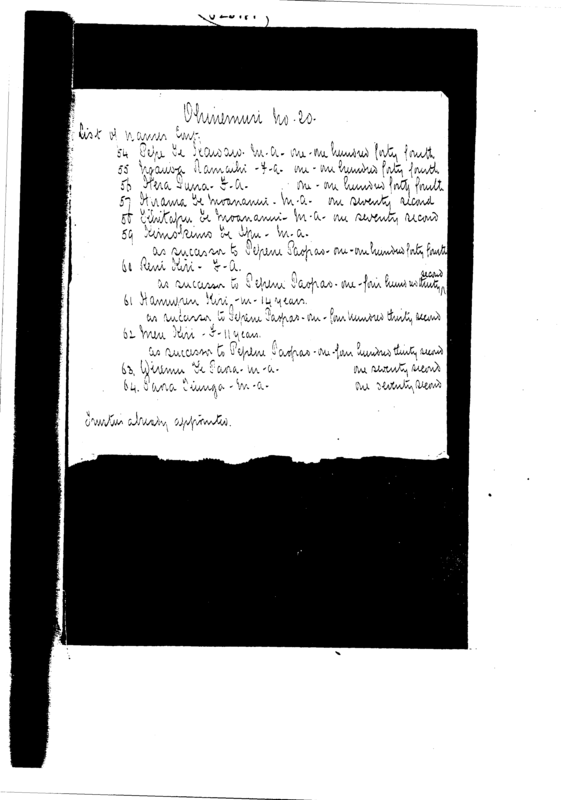 Ohinemuri No. 20.
List of names Con.
54 Pepe Te - m.a- one-one hundred forty fourth
55 - F-a- one-one hundred forty fourth
56 Hera Puna - F.a. one-one hundred forty fourth
57 Hirama Te Moananui - m.a- one seventy second
58 Te Moananui - m-a- one seventy second
59 Te - m-a.
as successor to Pepene Paopao-one-one hundred forty fourth
60 Reni Kiri - F-a.
as successor to Pepene Paopao-one-four hundred thirty
second
61 Kiri-m-14 years.
as successor to Pepene Paopao-one-four hundred thirty second
62 Mere Kiri - F-11 years.
as successor to Pepene Paopao-one-four hundred thirty second
63. Te Pana-m-a- one seventy second
64. Pana - m-a- one seventy second
already appointed.